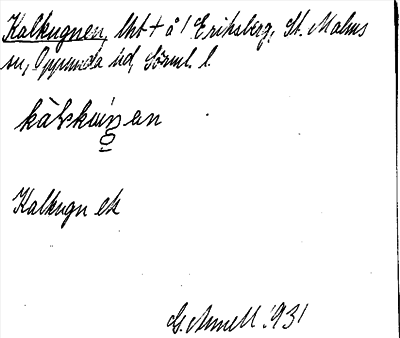 Kalkugnen, lht + å / Eriksberg, St. Malms
sn, Oppunda hd, Sörml. l.
Kalkugn ek
G. Armell 1931